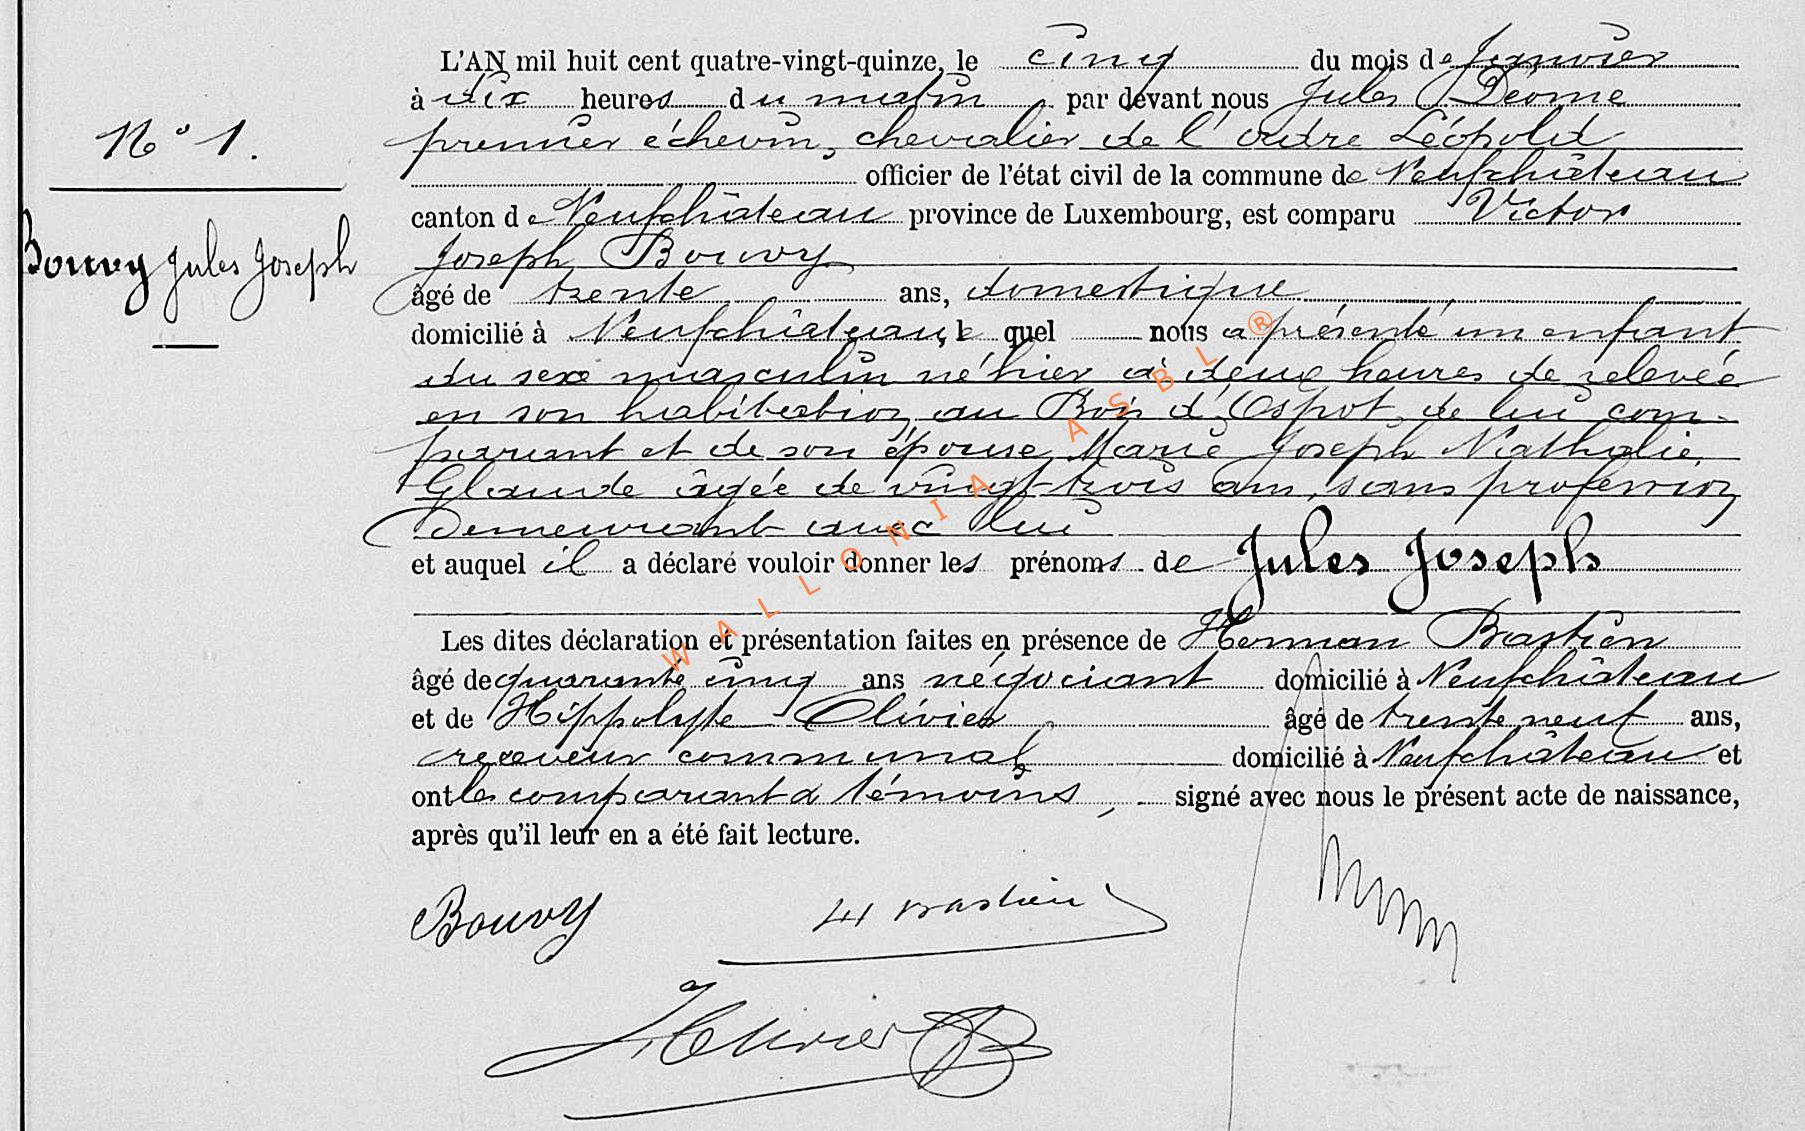 L'AN mil huit cent quatre-vingt-quinze, le cinq du mois de Janvier
à dix heures du matin par devant nous Jules Déome
N° 1.
premier échevin, chevalier de l'ordre Léopold
officier de l'état civil de la commune de Neufchâteau
canton de Neufchâteau province de Luxembourg, est comparu Victor
Bouvy Jules Joseph
Joseph Bouvy
âgé de trente ans, domestique
domicilié à Neufchâteau, le quel nous a présenté un enfant
du sexe masculin né hier à deux heures de relevée
en son habitation au Bois d'Ospot, de lui com-
parant et de son épouse Marie Joseph Nathalie
Glaude âgée de vingt-trois ans, sans profession
demeurant avec lui
et auquel il a déclaré vouloir donner les prénoms de Jules Joseph
Les dites déclaration et présentation faites en présence de Herman Bastien
âgé de quarante cinq ans négociant domicilié à Neufchâteau
et de Hippolyte Olivier âgé de trente neuf ans,
receveur communal domicilié à Neufchâteau et
ont les comparant & témoins, signé avec nous le présent acte de naissance,
après qu'il leur en a été fait lecture.
Bouvy H Bastien
H Olivier
WALLONIA ASBL ®